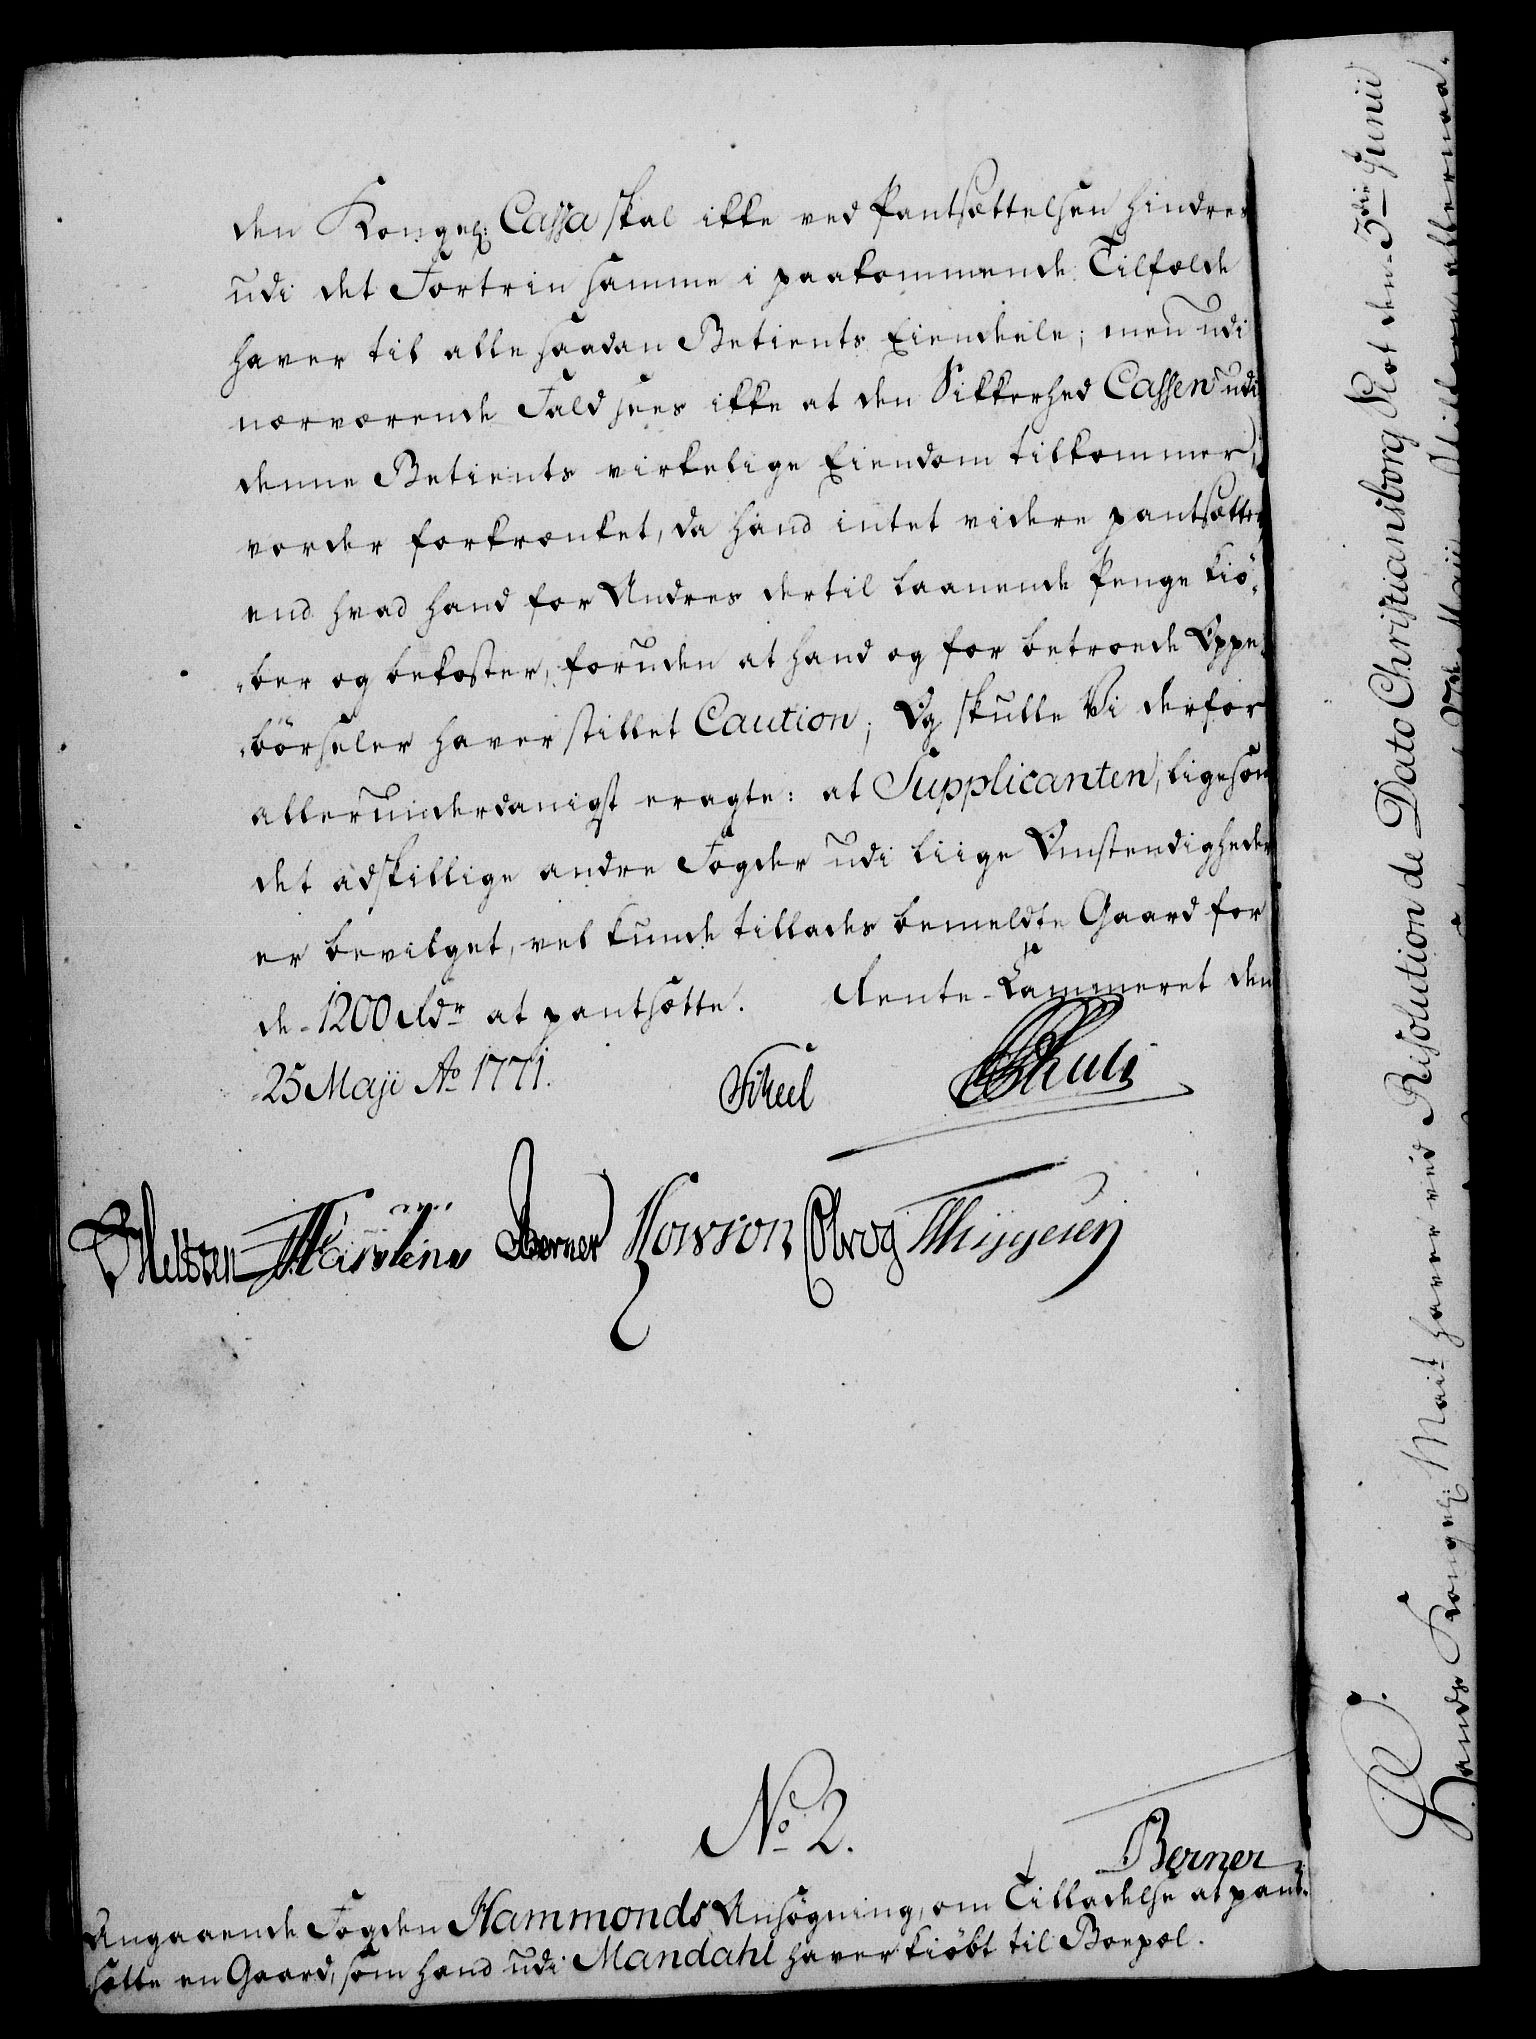 den Kongel: Cassa skal ikke ved Pantsættelsen hindres
udi det Fortrin samme i paakommende Tilfælde
haver til alle saadan Betients Eiendeele; men udi
nærværende Fald sees ikke at den Sikkerhed Cassen udi
denne Betients virkelige Eiendom tilkommer,
vorder forkrænket, da hand intet videre pantsætter,
end hvad hand for Andres dertil laanende Penge kiö-
-ber og bekoster, foruden at hand og for betroede Oppe-
-börseler haver stillet Caution; Og skulle Vi derfor
allerunderdanigst eragte: at Supplicanten, ligesom
det adskillige andre Fogder udi liige Omstendigheder
er bevilget, vel kunde tillades bemeldte Gaard for
de 1200 Rdr at pantsætte. Rente-Cammeret den
25 Maji Ao 1771.
Scheel
Berner Kowson
No 2.
Berner
Angaaende Fogden Hammonds Ansögning, om Tilladelse at pant-
sætte en Gaard, som hand udi Mandahl haver kiöbt til Boepæl.
Hands Kongel: Mait haver ved Resolution de Dato Christiansborg Slot den 3die Junii